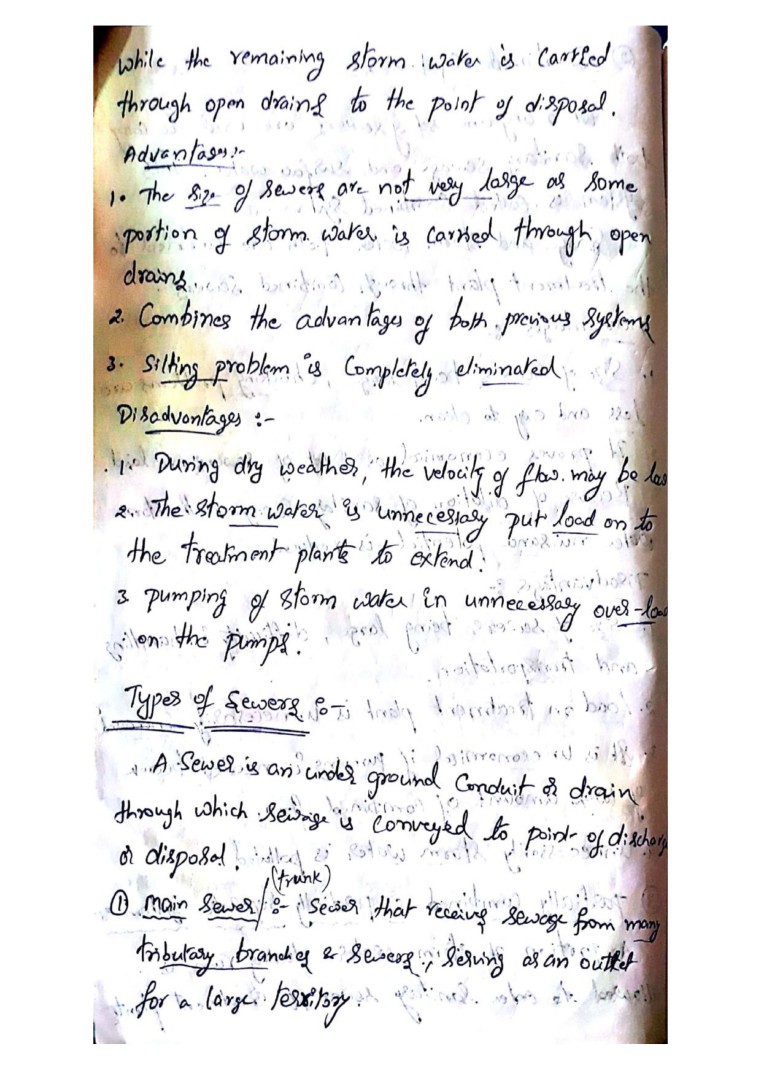 while the remaining storm water is carried
through open drains to the point of disposal.
Advantages:-
1. The size of sewers are not very large as some
portion of storm water is carried through open
drains
2. Combines the advantages of both previous systems
3. Silting problem is Completely eliminated
Disadvantages :-
1. During dry weather, the velocity of flow may be
2. The storm water is unnecessary put load on to
the treatment plants to extend.
3 pumping of storm water in unnecessary over-
on the pumps.
Types of Sewers :-
A Sewer is an under ground Conduit or drain
through which sewage is conveyed to point of
or disposal.
(trunk)
① Main Sewer/ :- Sewer that receives sewage from many
tributary branches & sewers, serving as an outlet
for a large territory.